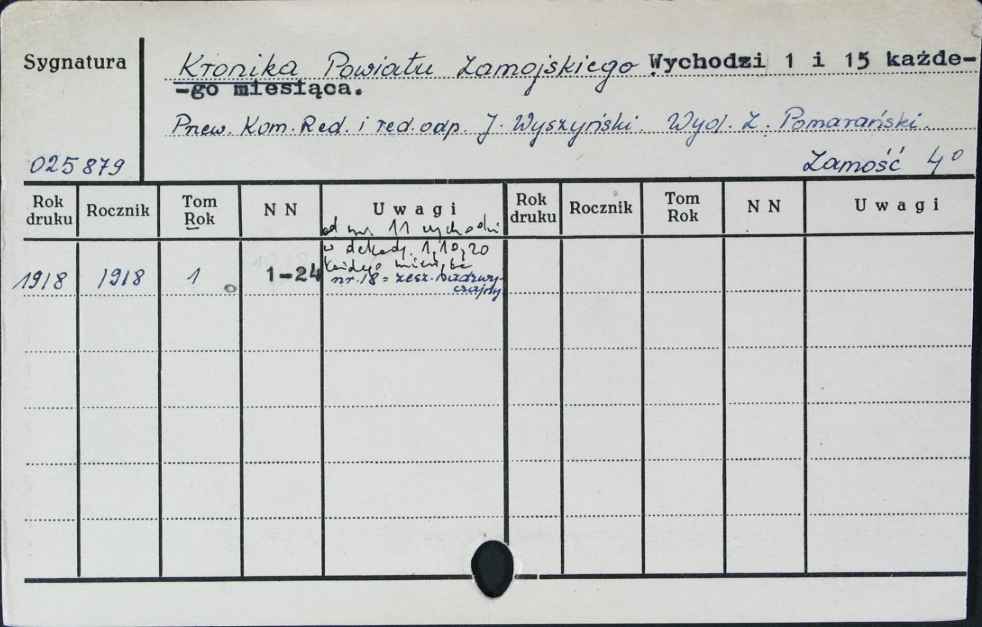 Sygnatura
Kronika Powiatu Zamojskiego Wychodzi 1 i 15 każde-
-go miesiąca.
Przew. Kom. Red. i red. odp. J. Wyszyński. Wyd. Z. Pomarański.
025879
Zamość 4°
Rok druku Rocznik Tom Rok N N Uwagi Rok druku Rocznik Tom Rok N N Uwagi
od nr. 11 wychodzi
w dekady. 1, 10, 20
każdego miesiąca
1918 1918 1 1-24 nr. 18 = zesz. nadzwy-
czajny